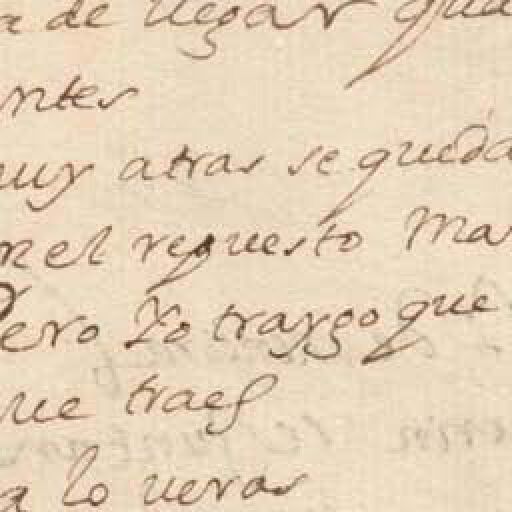 a de llegar qua
ntes
uy atras se queda
n el requesto Ma
ero Yo traygo que
ue traes
a lo veras